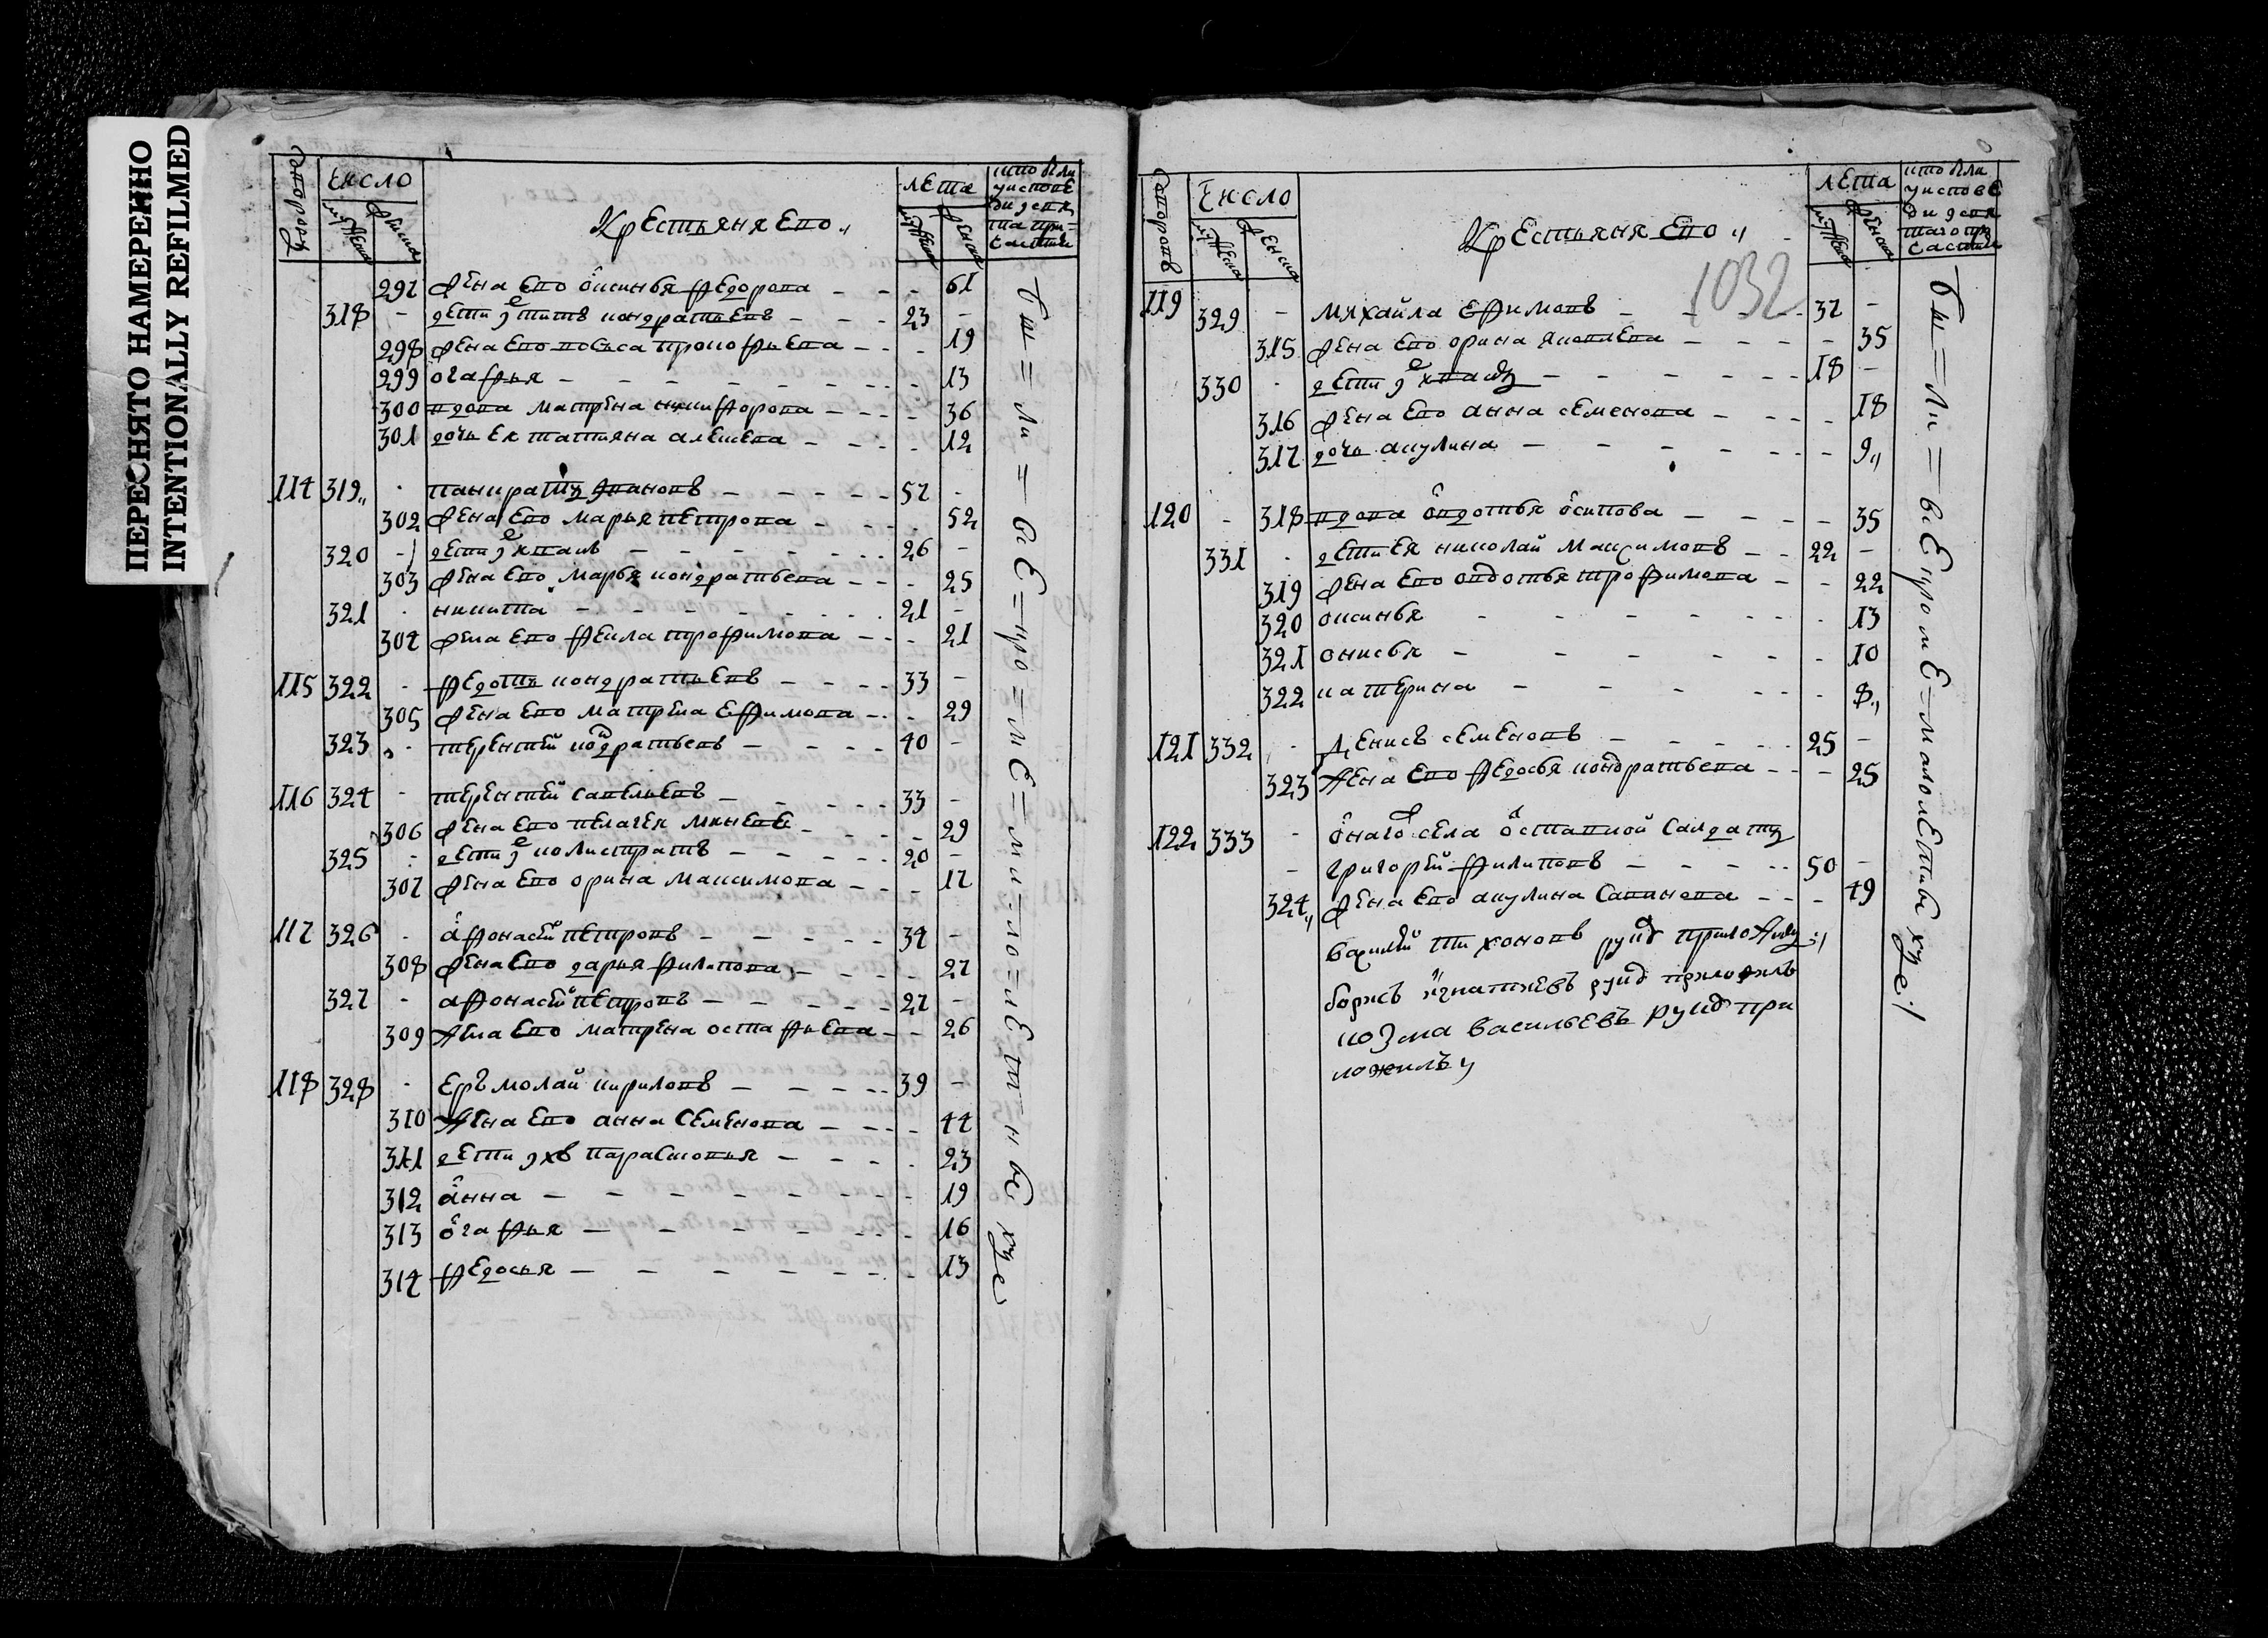 ПЕРЕСНЯТО НАМЕРЕННО
INTENTIONALLY REFILMED
число
мужеска
женска
Крестьяня ево
лета
мужеска
женска
хто были
297 жена ево оксинья федорова - - - 61
318 - дети ихъ титъ кондратьевъ - - - 23 -
298 жена ево прокофьева - - - 19
299 огафья - - - - - - - - 13
300 вдова матрена никифорова - - - - 36
301 дочь ея татьяна алексева - - - 12
114 319 - панкратъ ивановъ - - - - - 57 -
302 жена ево марья петрова - - - - 52
320 - дети ихъ - - - - - - - 26 -
303 жена ево марья кондратьева - - - 25
321 - никита - - - - - - - 21 -
304 жена ево фекла трофимова - - - 21
115 322 - федотъ кондратьевъ - - - - 33 -
305 жена ево матрена ефимова - - - 29
323 - терентей кондратьевъ - - - - 40 -
116 324 - терентей савельевъ - - - - - 33 -
306 жена ево пелагея - - - - 29
325 - дети ихъ калистратъ - - - - - 20 -
307 жена ево орина максимова - - - 17
117 326 - афонасей петровъ - - - - - 34 -
308 жена ево дарья филипова - - - - 27
327 - афонасей петровъ - - - - - 27 -
309 жена ево матрена остафьева - - 26
118 328 - еръмолай кириловъ - - - - - 39 -
310 жена ево анна семенова - - - - 44
311 дети ихъ парасковья - - - - 23
312 анна - - - - - - - - 19
313 огафья - - - - - - - - 16
314 федосья - - - - - - - - 13
бы = ли = все = кро = ме = ма = ло = ле т = н ве хъ
число
мужеска
женска
Крестьяня ево
1032
лета
мужеска
женска
хто были
119 329 - михайла ефимовъ - - - - 37 -
315 жена ево орина яковлева - - - - - 35
330 - дети ихъ - - - - - - 18 -
316 жена ево анна семенова - - - - 18
317 дочь акулина - - - - - - 9
120 - 318 вдова овдотья осипова - - - - 35
331 - дети ея николай максимовъ - - 22 -
319 жена ево овдотья трофимова - - 22
320 оксинья - - - - - - - 13
321 онисья - - - - - - - 10
322 катерина - - - - - - - 8
121 332 - денисъ семеновъ - - - - - 25 -
323 жена ево федосья кондратьева - - - 25
122 333 - онаго села отставной салдатъ
- григорей филиповъ - - - - - 50 -
324 жена ево акулина савинова - - - 49
василей тихоновъ руку приложилъ
борисъ игнатиевъ руку приложилъ
козма васильевъ руку при
ложилъ
бы = ли = все кроме = малолетныхъ